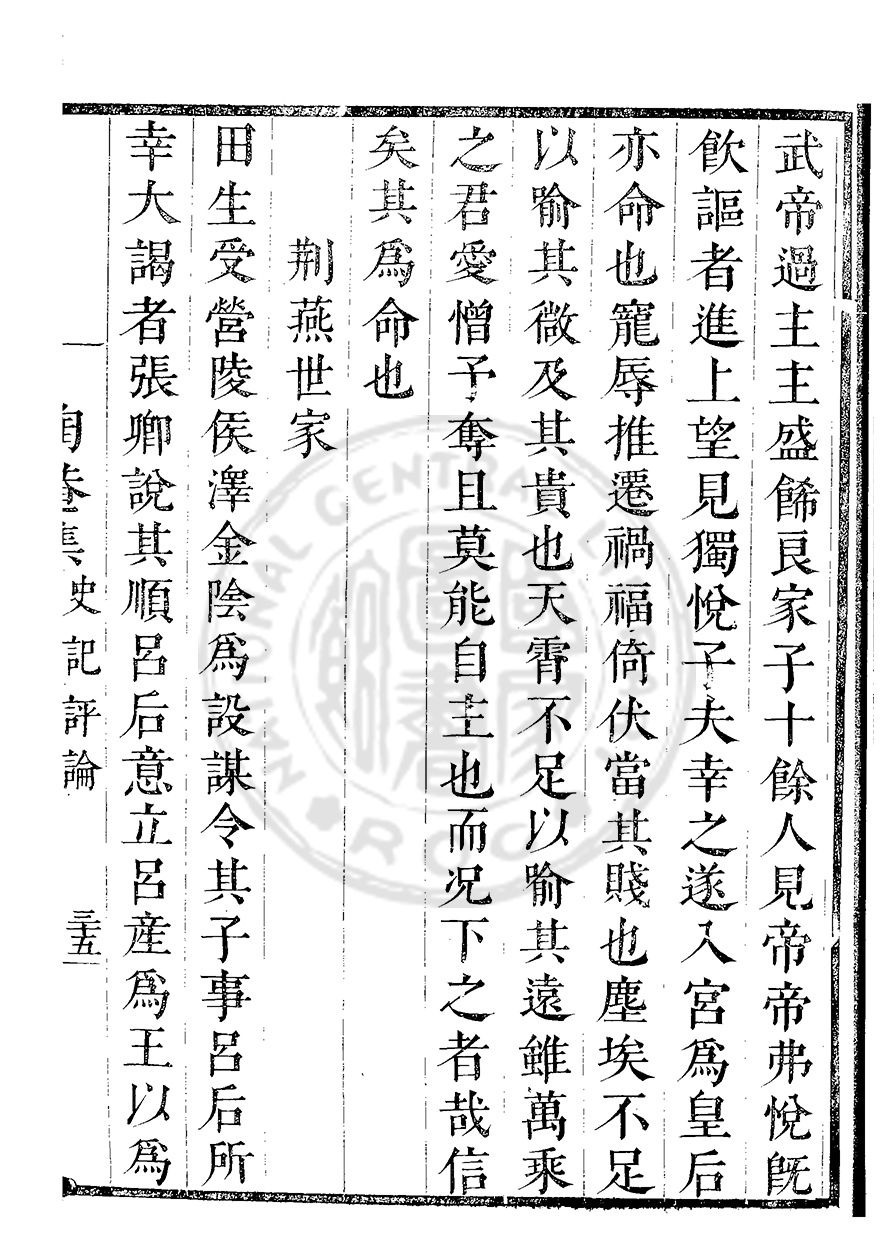 武帝過主主盛餙良家子十餘人見帝帝弗悅旣
飮謳者進上望見獨悅子夫幸之遂入宮爲皇后
亦命也寵辱推遷禍福倚伏當其賤也塵埃不足
以喻其微及其貴也天霄不足以喻其遠雖萬乘
之君愛憎予奪且莫能自主也而况下之者哉信
矣其爲命也
荆燕世家
田生受營陵侯澤金陰爲設謀令其子事呂后所
幸大謁者張卿說其順呂后意立呂產爲王以爲
陶菴集史記評論 三五
NATIONAL CENTRAL LIBRARY R.O.C.
國家圖書館